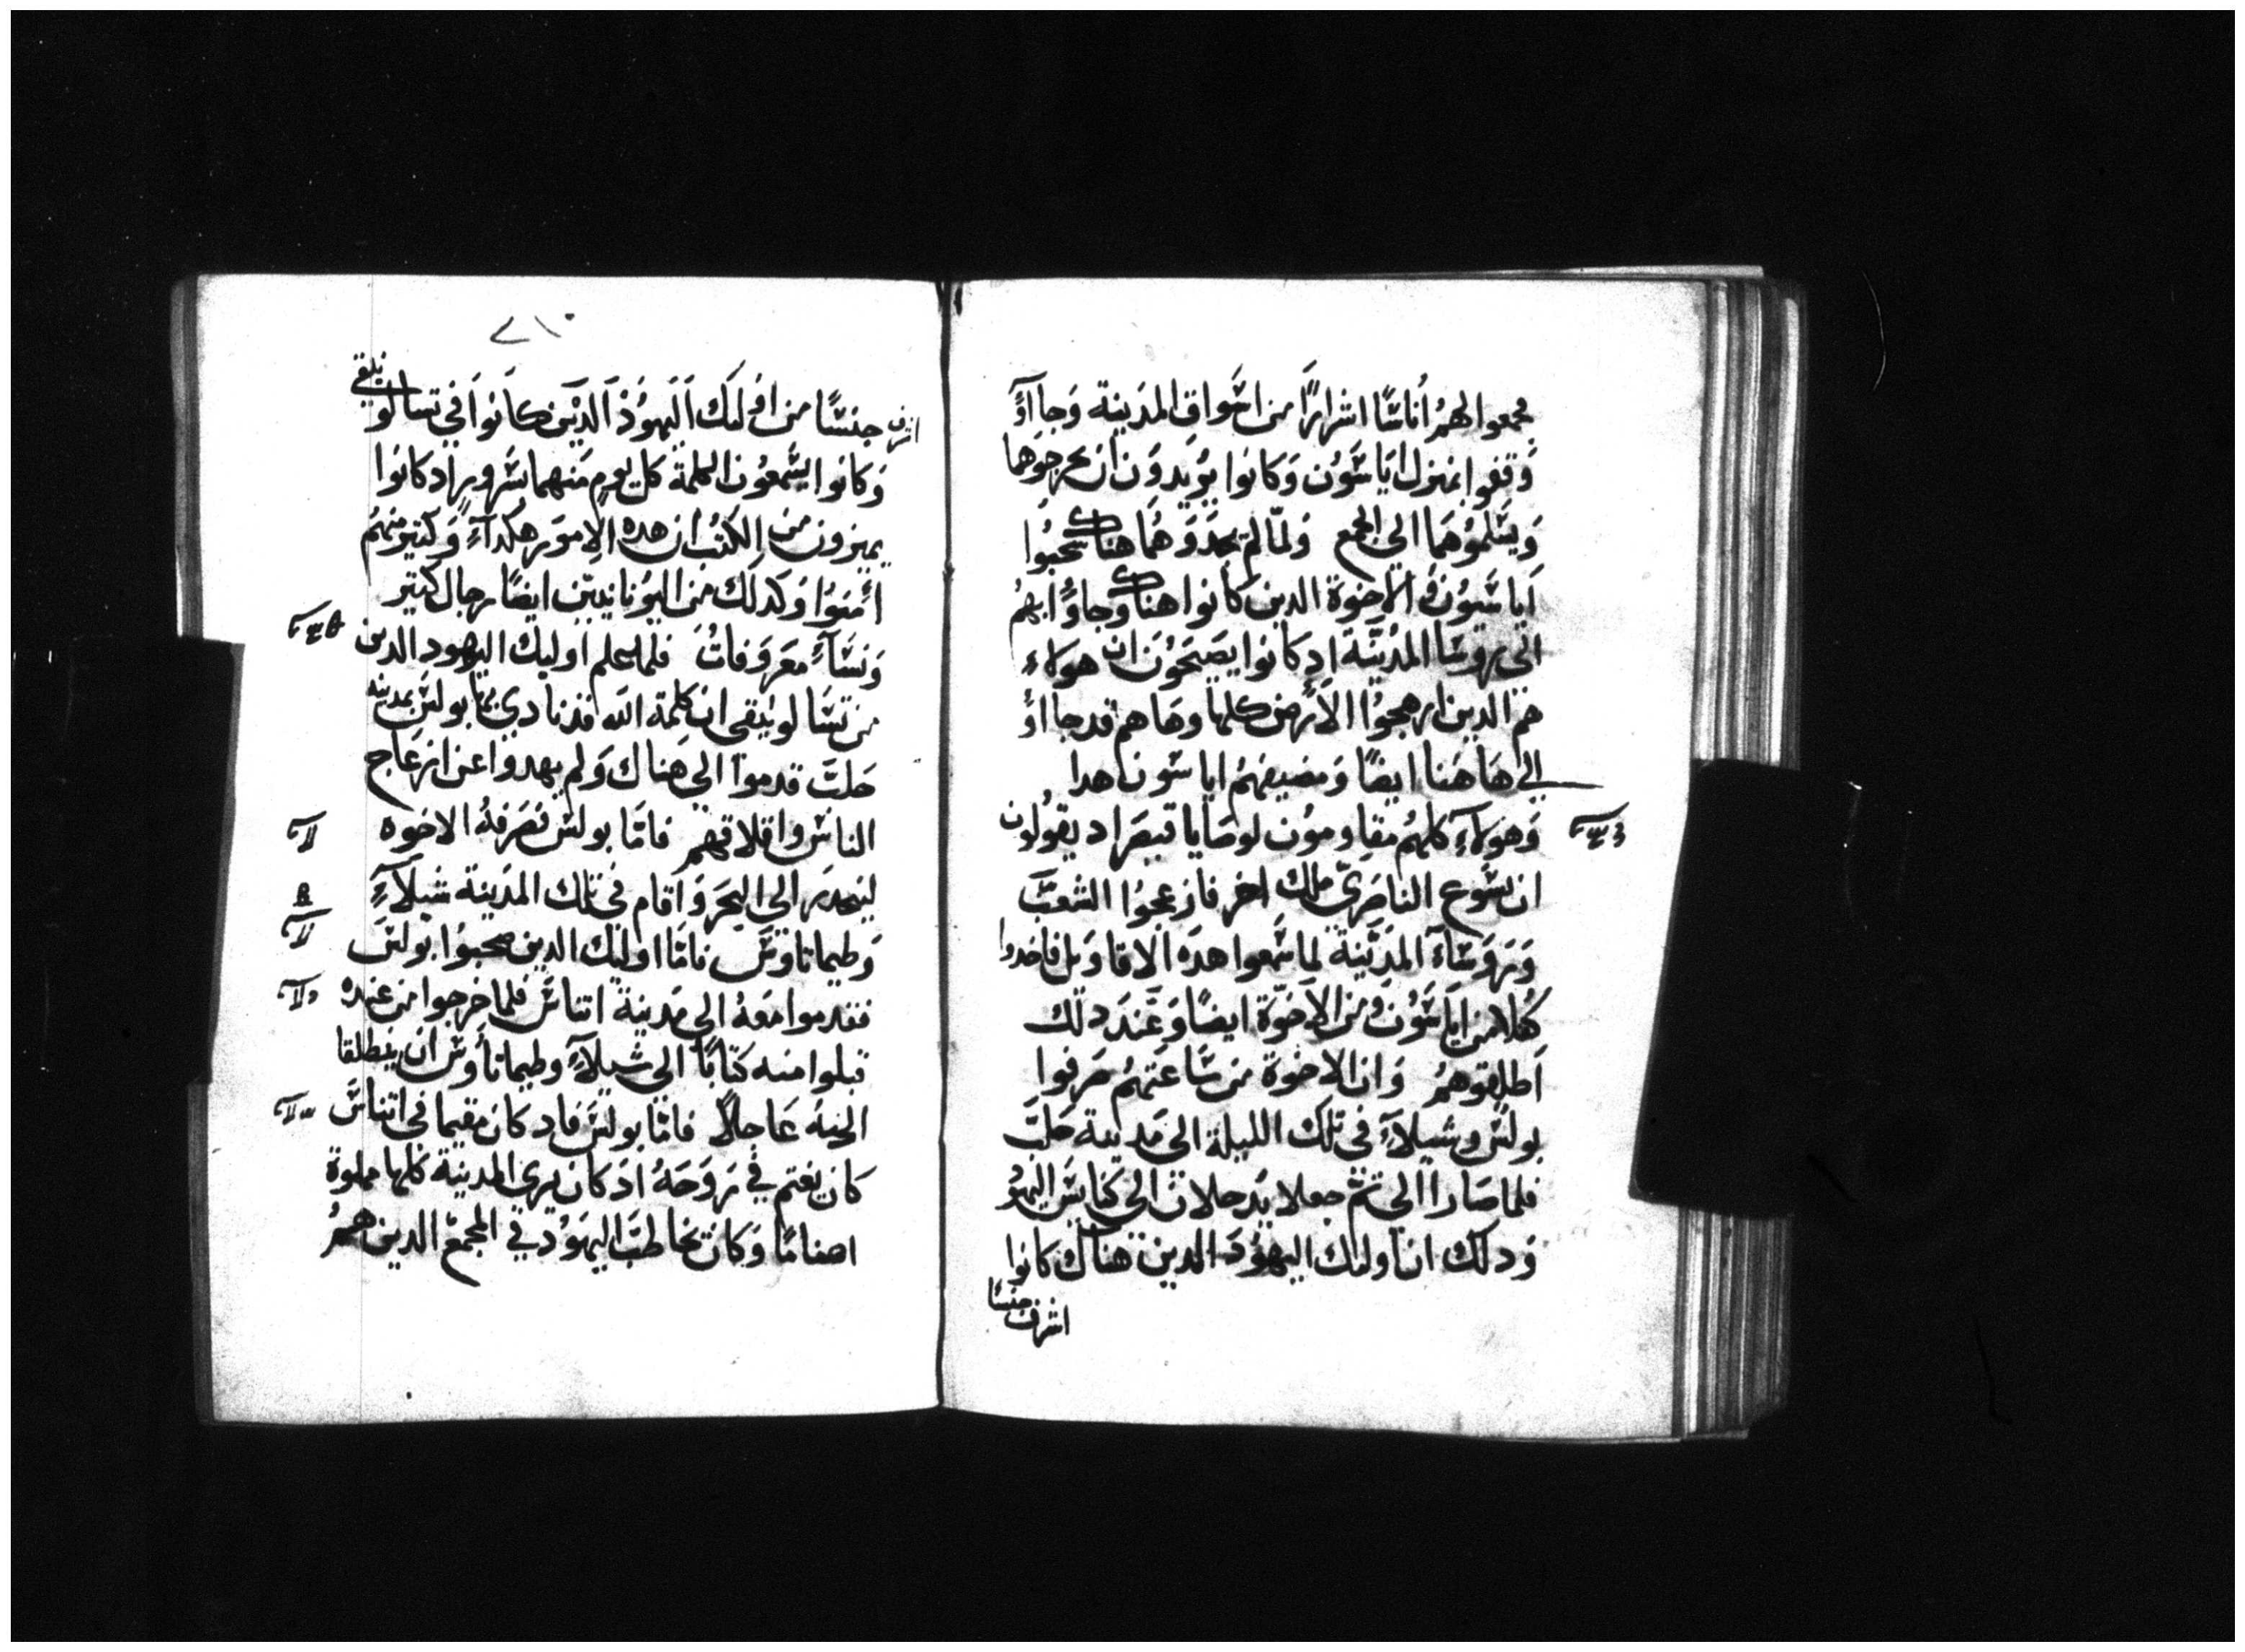 فجمعوا لهم أناسًا اشرارًا من اسواق المدينة وجاآؤ
وقفوا بمنزل اياسون وكانوا يريدون ان يخرجوهما
ويسلموهما الي الجمع ولمّا لم يجدوهما هناك سحبوا
اياسون والاخوة الدين كانوا هناك وجاؤا بهم
الى روسا المدينة اد كانوا يصيحون ان هولاء
هم الدين ارهجوا الارض كلها وها هم قد جااؤ
الى هاهنا ايضًا ومضيفهم اياسون هدا
وهولاء كلهم مقاومون لوصايا قيصر اد يقولون
ان يسوع الناصريّ ملك اخر فازعجوا الشعب
وروساء المدينة لما سمعوا هده الاقاويل فاخدوا
كفلا من اياسون ومن الاخوة ايضًا وعند دلك
اطلقوهم وان الاخوة من ساعتهم صرفوا
بولس وشيلاء في تلك الليلة الى مدينة حلب
فلما صارا الي تم جعلا يدخلان الي كنايس اليهود
ودلك ان اوليك اليهود الدين هناك كانوا
اشرف جنسًا
٢١٠
اشرف جنسًا من اوليك اليهود الدين كانوا في تسالونيقي
وكانوا يسمعون الكلمة كل يوم منهما بسرور اد كانوا
يميزون من الكتب ان هده الامور هكداء وكتير منهم
أمنوا وكدلك من اليونانيين ايضًا رجال كتير
ونساء معروفات فلما علم اوليك اليهود الدين
من تسالونيقي ان كلمة الله قد نادي بها بولس بمدينة
حلب قدموا الي هناك ولم يهدوا عن ازعاج
الناس واقلاقهم فامّا بولس فصرفه الاخوه
لينحدر الي البحر واقام في تلك المدينة شيلاء
وطيماتاوس فامّا اوليك الدين صحبوا بولس
فقدموا معه الي مدينة اتناس فلما خرجوا من عنده
قبلوا منه كتابًا الي شيلاء وطيماتأوس ان ينطلقا
اليه عاجلاً فامّا بولس فاد كان مقيما في اتناس
كان يغتم في روحه اد كان يري المدينة كلها مملوة
اصنامًا وكان يخاطب اليهود في المجمع الدين هم